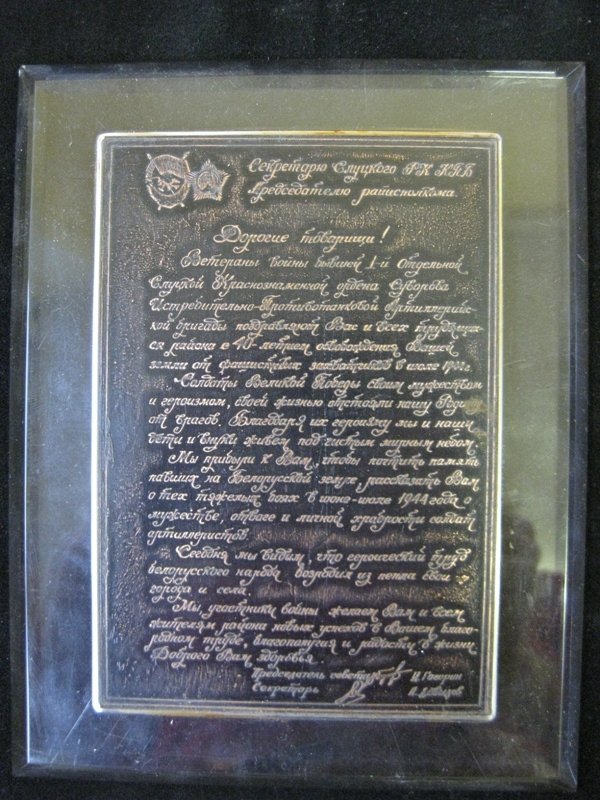 Секретарю Слуцкого РК КПБ
Председателю райисполкома.
Дорогие товарищи!
Ветераны войны бывшей 1-й Отдельной
Слуцкой Краснознаменной ордена Суворова
Истребительно-Противотанковой Артиллерийс-
кой бригады поздравляют Вас и всех трудящих-
ся района с 40-летием освобождения Вашей
земли от фашистских захватчиков в июле 1944г.
Солдаты Великой Победы своим мужеством
и героизмом, своей жизнью отстояли нашу Роди
от врагов. Благодаря их героизму мы и наши
дети и внуки живем под чистым мирным небом.
Мы прибыли к Вам, чтобы почтить память
павших на Белорусской земле, рассказать Вам
о тех тяжелых боях в июне-июле 1944 года о
мужестве, отваге и личной храбрости солдат
артиллеристов.
Сегодня мы видим, что героический труд
белорусского народа возродил из пепла свои
города и села.
Мы участники войны желаем Вам и всем
жителям района новых успехов в Вашем благо-
родном труде, благополучия и радости в жизни.
Доброго Вам здоровья.
Председатель совета И. Говорин
Секретарь